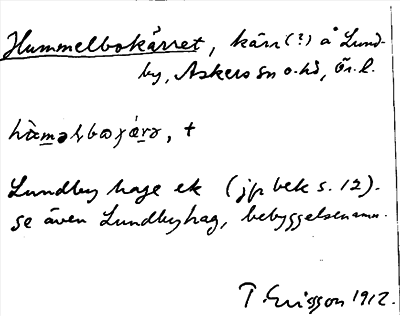 Hummelbokärret, kärr(?) å Lund-
by, Askers sn o. hd, Ör. l.
hɷ̀məɫbɷχæ̀rə, +
Lundby hage ek (jp bek s. 12).
se även Lundbyhag, bebyggelsenamn.
T. Ericsson 1912.